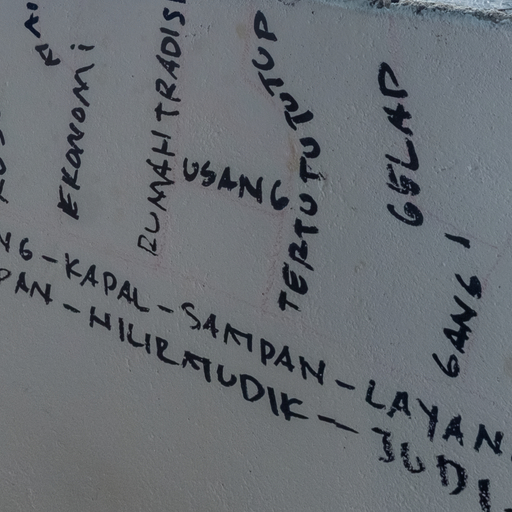 EKONOMi
RUMAH TRADISI
USANG
TERTUTUTUTUP
GELAP
GANG
KAPAL-SAMPAN-LAYAN
HILIRMUDIK-JUDI